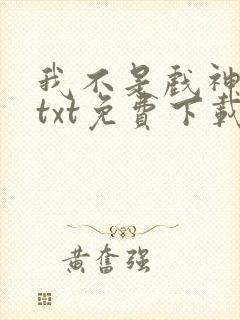 我不是戏神
txt免費下載
黄奮强